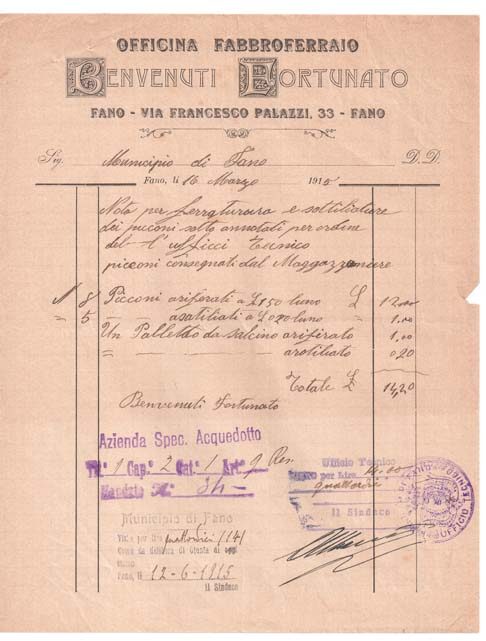 OFFICINA FABBROFERRAIO
BENVENUTI FORTUNATO
FANO - VIA FRANCESCO PALAZZI, 33 - FANO
Sig. Municipio di Fano D. D.
Fano, li 16 Marzo 1915
Nota per ferraturara e sottiliature
dei picconi sotto annotati per ordine
del l'ufficci Tecnico
picconi consegnati dal Maggazzeniere
N 8 Picconi ariforati a £ 1,50 luno £ 12.00
" 5 — asatiliati a £ 0,20 luno " 1.00
Un Palletto da salcino arifirato 1.00
" — — — arotiliato 0.20
Totale £ 14,20
Benvenuti Fortunato
Azienda Spec. Acquedotto
Tit.° 1 Cap.° 2 Cat.° 1 Art.° 9 Res
Mandato N.° 34
Ufficio Tecnico
per Lire 14.00
quattordici
Il Sindaco
UFFICIO TECNICO
Municipio di Fano
Visto per lire quattordici (14)
Come da delibera di Giunta di oggi
Fano, li 12-6-1915
Il Sindaco